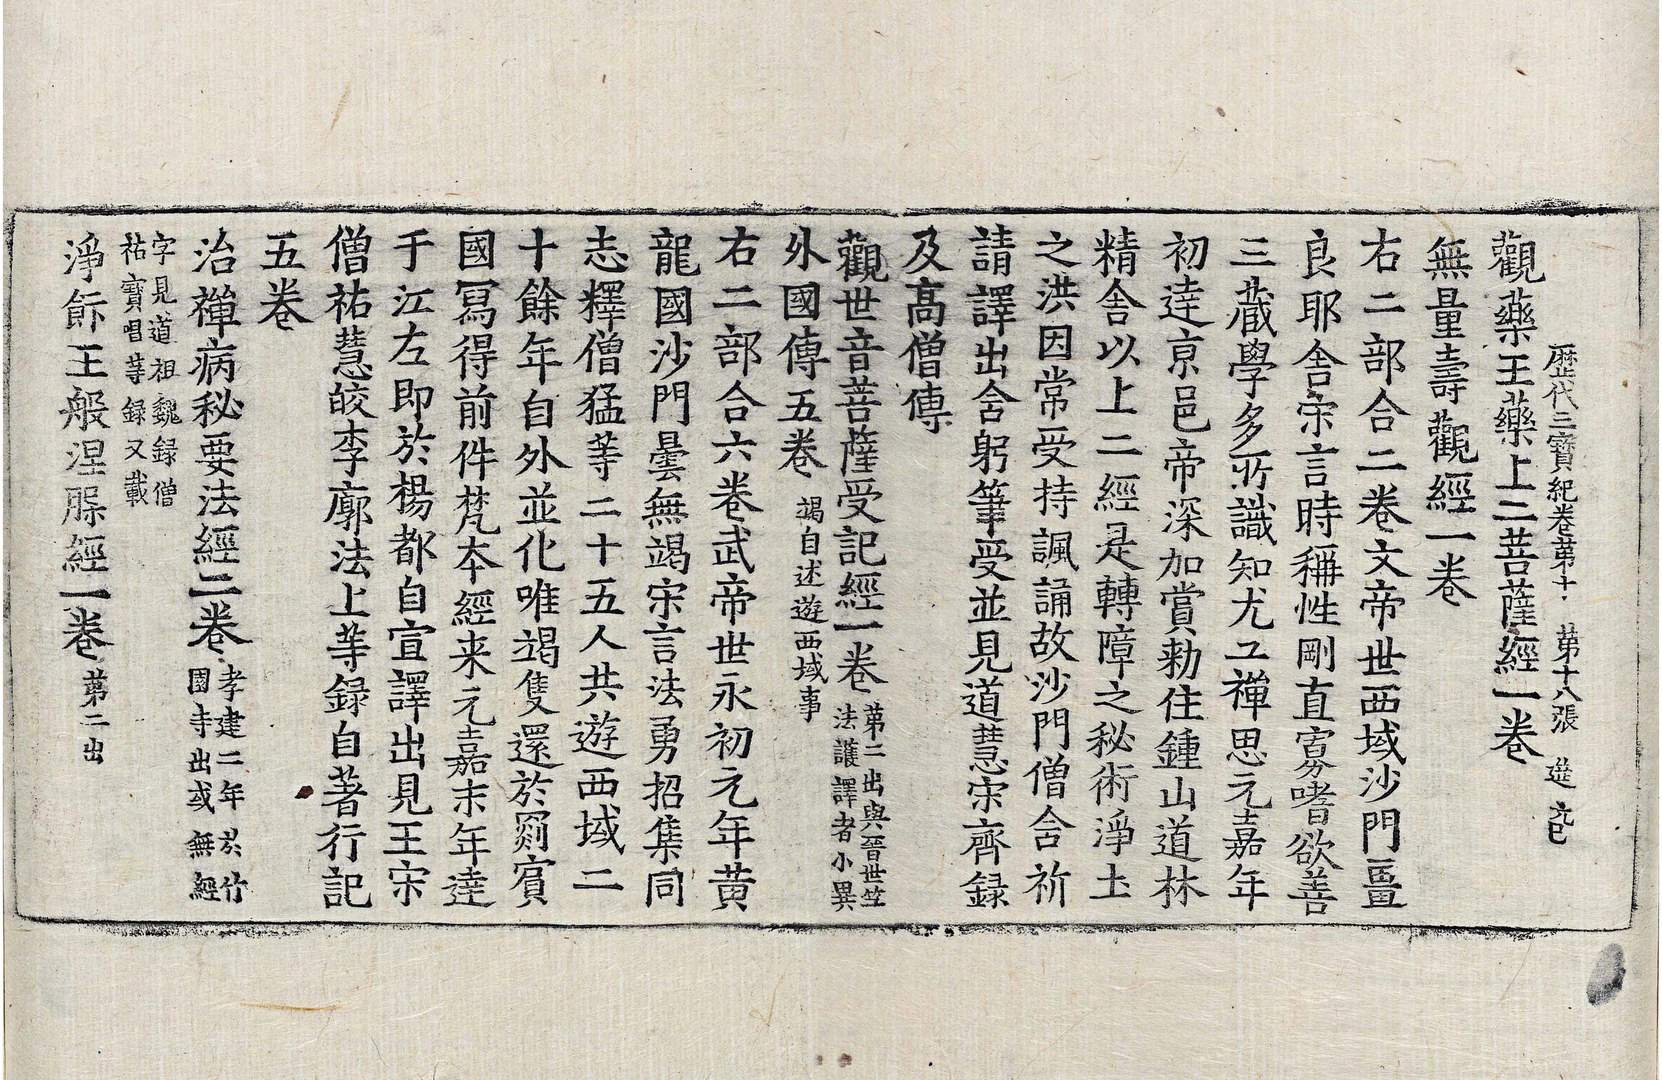 歷代三寶紀卷第十 第十八張 㳂
觀藥王藥上二菩薩經一卷
無量壽觀經一卷
右二部合二卷文帝世西域沙門畺
良耶舍宋言時稱性剛直寡嗜欲善
三藏學多所識知尤工禪思元嘉年
初達京邑帝深加賞勑住鍾山道林
精舍以上二經是轉障之秘術淨土
之洪因常受持諷誦故沙門僧含祈
請譯出含躬筆受並見道慧宋齊録
及高僧傳
觀世音菩薩受記經一卷 第二出與晉世竺
法護譯者小異
外國傳五卷 竭自述遊西域事
右二部合六卷武帝世永初元年黄
龍國沙門曇無竭宋言法勇招集同
志釋僧猛等二十五人共遊西域二
十餘年自外並化唯竭隻還於罽賓
國寫得前件梵本經来元嘉末年達
于江左即於楊都自宣譯出見王宋
僧祐慧皎李廓法上等録自著行記
五卷
治禪病秘要法經二卷 孝建二年於竹
園寺出或無經
字見道祖魏録僧
祐寶唱等録又載
淨飯王般涅槃經一卷 第二出